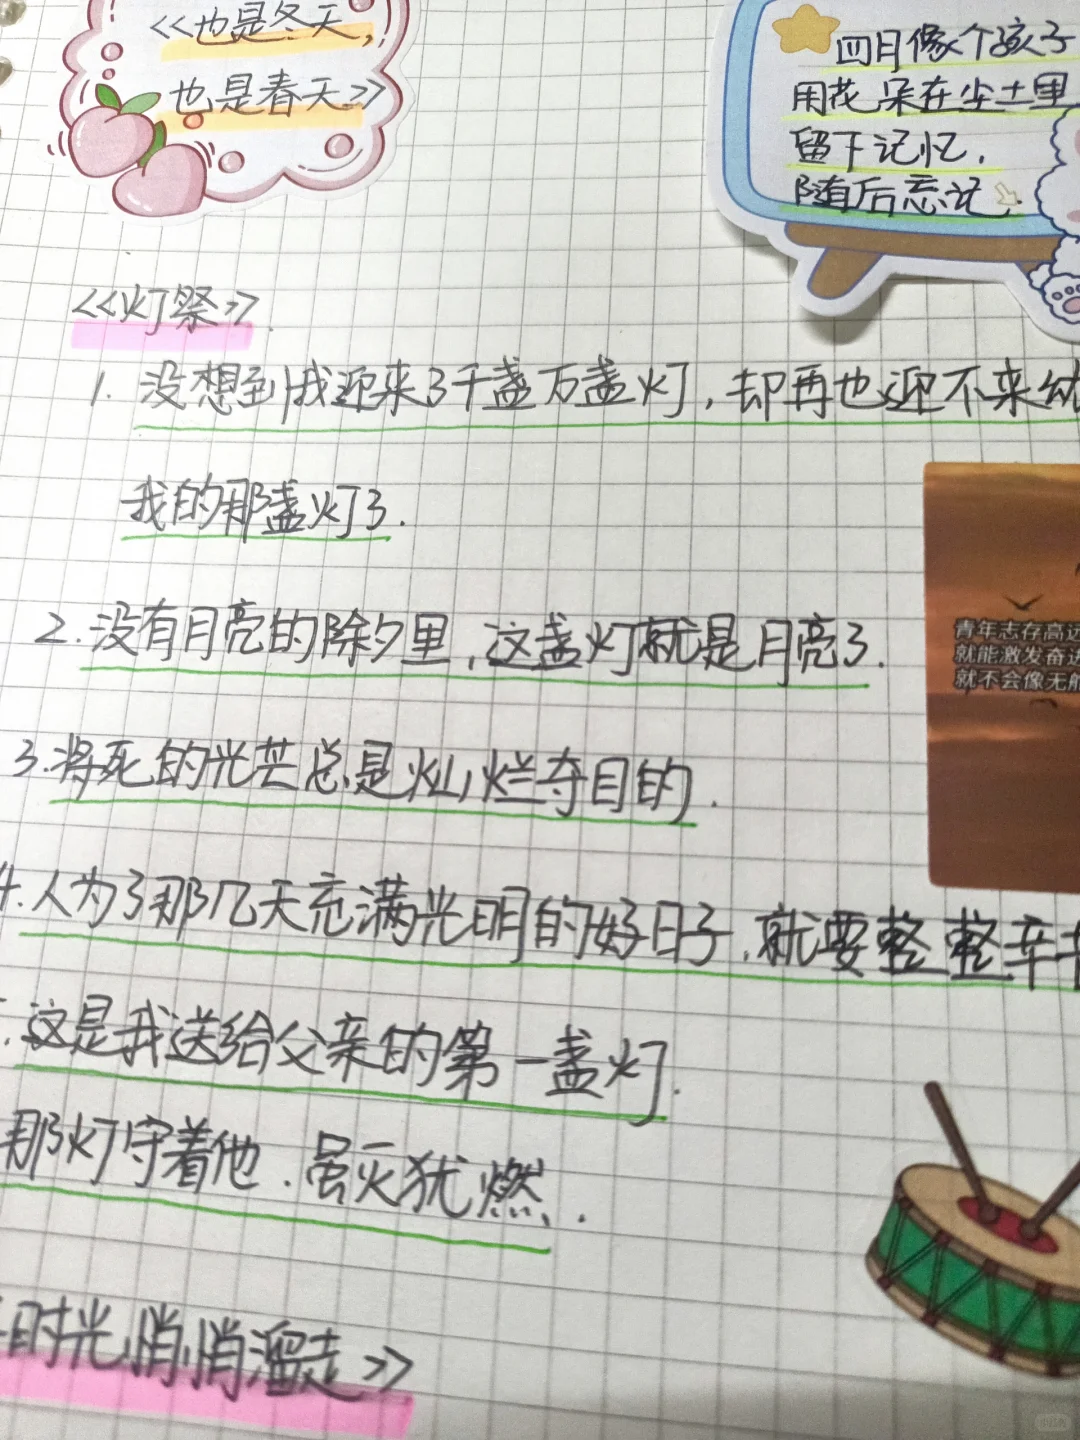 <<也是冬天,
也是春天>>
四月像个孩子
用花朵在尘土里
留下记忆.
随后忘记.
<<灯祭>>.
1. 没想到我迎来了千盏万盏灯,却再也迎不来
我的那盏灯了.
2.没有月亮的除夕里,这盏灯就是月亮了.
青年志存高远
就能激发奋进
就不会像无
3.将死的光芒总是灿烂夺目的.
4.人为了那几天充满光明的好日子,就要整整辛
这是我送给父亲的第一盏灯.
那灯守着他.虽灭犹燃.
时光悄悄溜走>>